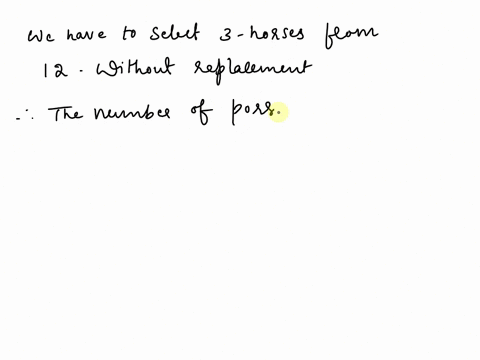 we have to select 3-horses from
12. Without replacement
∴ The number of poss.